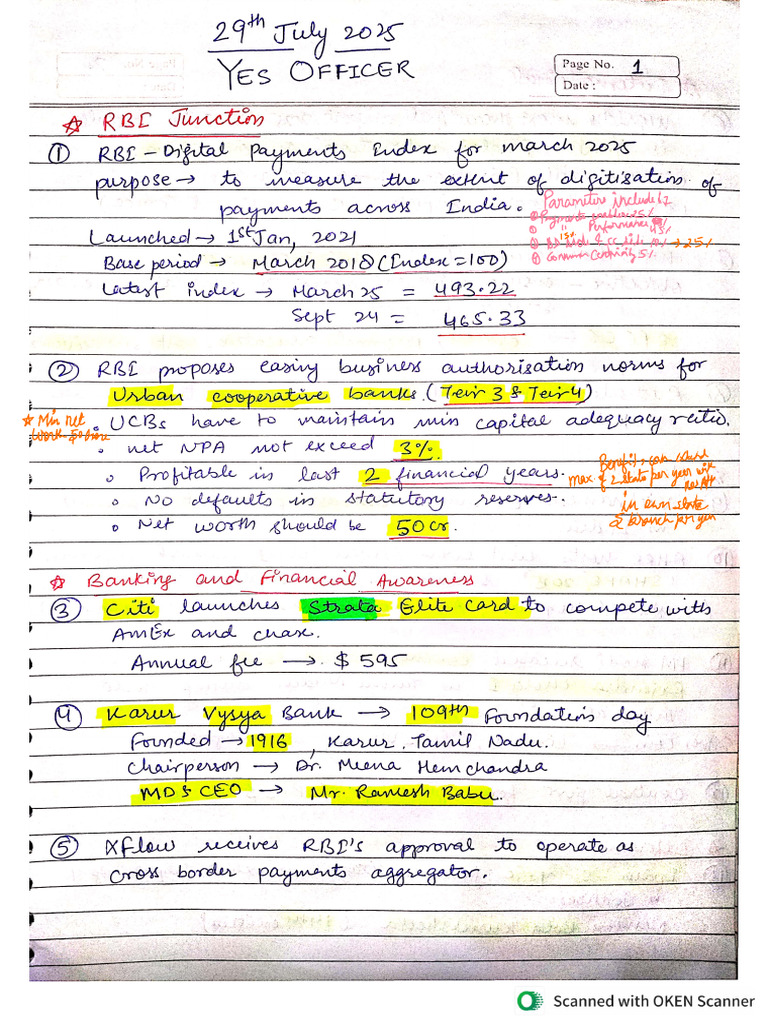 29th July 2025
YES OFFICER
Page No. 1
Date :
☆ RBI Junction
① RBI - Digital Payments Index for march 2025
purpose → to measure the extent of digitisation of
payments across India.
Parameters include
Performance 45%
→ 25%
Consumer Centricity 5%
Launched → 1st Jan, 2021
Base period → March 2018 (Index = 100)
Latest index → March 25 = 493.22
Sept 24 = 465.33
② RBI proposes easing business authorisation norms for
Urban cooperative banks. (Teir 3 & Teir 4)
★ Min net
• UCBs have to maintain min capital adequacy ratio.
◦ net NPA not exceed 3%.
◦ Profitable in last 2 financial years.
◦ No defaults in statutory reserves.
◦ Net worth should be 50 cr.
max of 2 state per year
in own state
2 branch per year
☆ Banking and Financial Awareness
③ Citi launches Strata Elite Card to compete with
AmEx and chase.
Annual fee → $ 595
④ Karur Vysya Bank → 109th Foundation day
Founded → 1916, Karur, Tamil Nadu.
Chairperson → Dr. Meena Hemchandra
MD & CEO → Mr. Ramesh Babu.
⑤ XFlow receives RBI's approval to operate as
cross border payments aggregator.
Scanned with OKEN Scanner